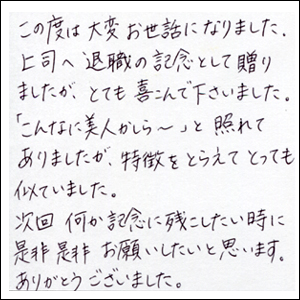 この度は大変お世話になりました．
上司へ退職の記念として贈り
ましたが、とても喜こんで下さいました。
「こんなに美人かしら〜」と照れて
ありましたが、特徴をとらえてとっても
似ていました。
次回何か記念に残こしたい時に
是非是非お願いしたいと思います。
ありがとうございました。